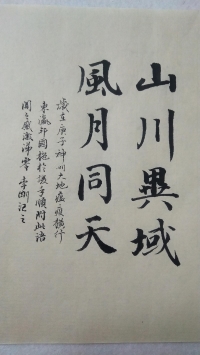 山川異域
風月同天
歲在庚子神州大地疫疫橫行
東瀛邦國施於援手順附此語
聞之感激涕零 李剛記之